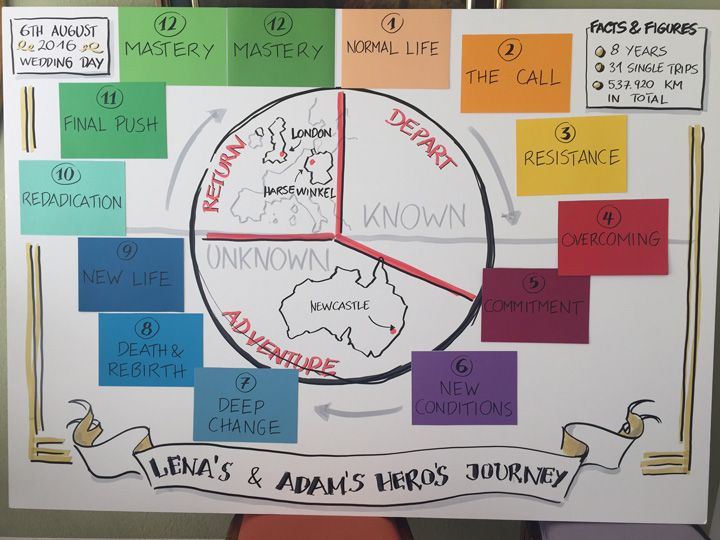 6TH AUGUST
2016
WEDDING DAY
12
MASTERY
12
MASTERY
1
NORMAL LIFE
2
THE CALL
FACTS & FIGURES
8 YEARS
31 SINGLE TRIPS
537.920 KM
IN TOTAL
3
RESISTANCE
4
OVERCOMING
5
COMMITMENT
6
NEW
CONDITIONS
7
DEEP
CHANGE
8
DEATH &
REBIRTH
9
NEW LIFE
10
REDADICATION
11
FINAL PUSH
RETURN
DEPART
ADVENTURE
LONDON
HARSEWINKEL
KNOWN
UNKNOWN
NEWCASTLE
LENA'S & ADAM'S HERO'S JOURNEY